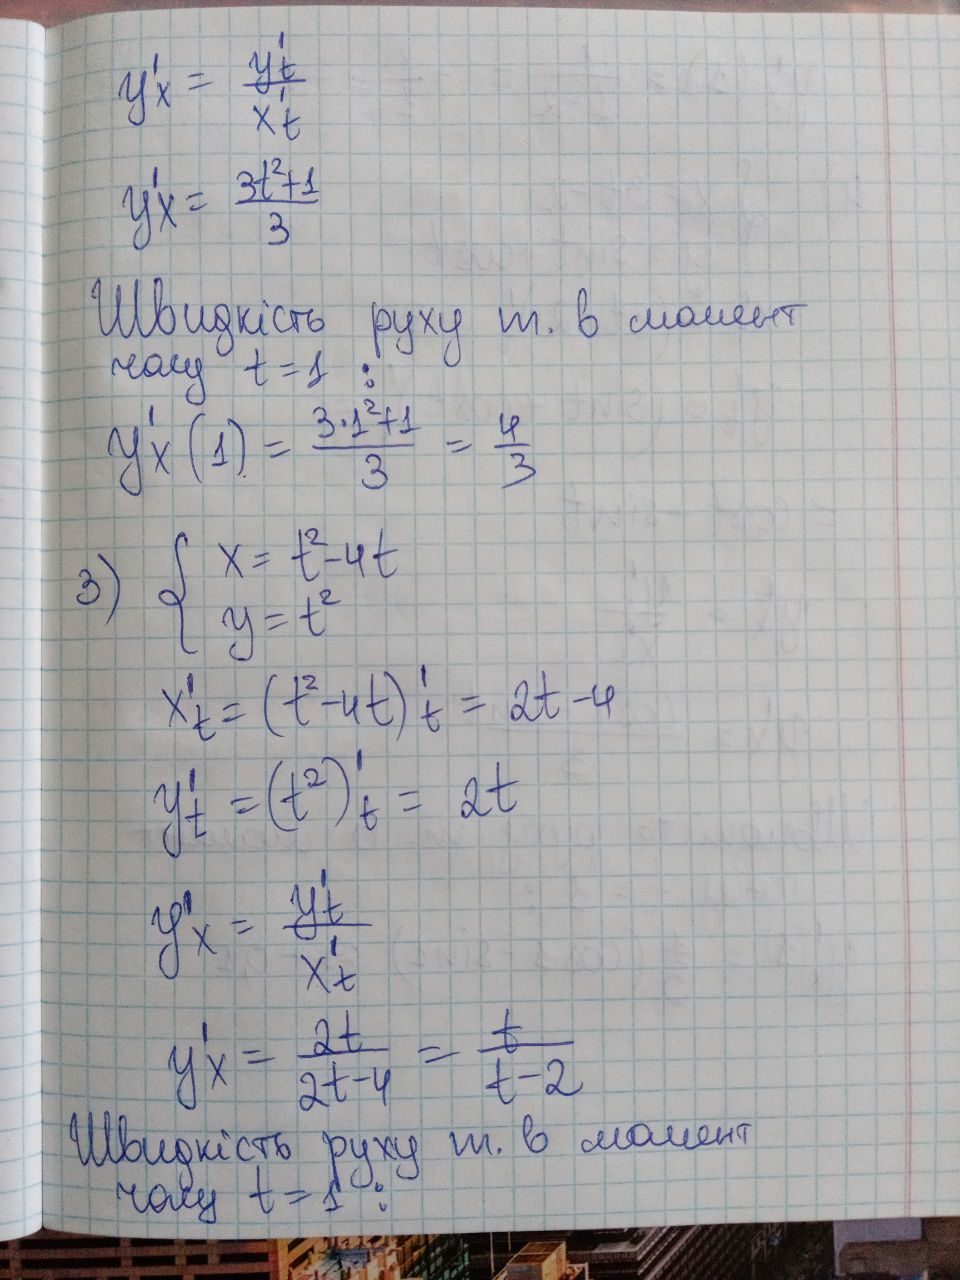 y'x = y't / x't
y'x = 3t²+1 / 3
Швидкість руху т. в момент
часу t = 1 :
y'x (1) = 3·1²+1 / 3 = 4 / 3
3) { x = t²-4t
y = t²
x't = (t²-4t)'t = 2t-4
y't = (t²)'t = 2t
y'x = y't / x't
y'x = 2t / 2t-4 = t / t-2
Швидкість руху т. в момент
часу t = 1 :